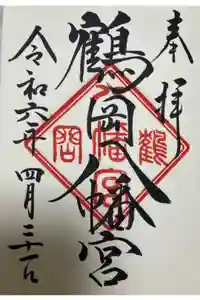 奉拝
鶴岡八幡宮
令和六年四月二十一日
鶴
八幡宮
岡